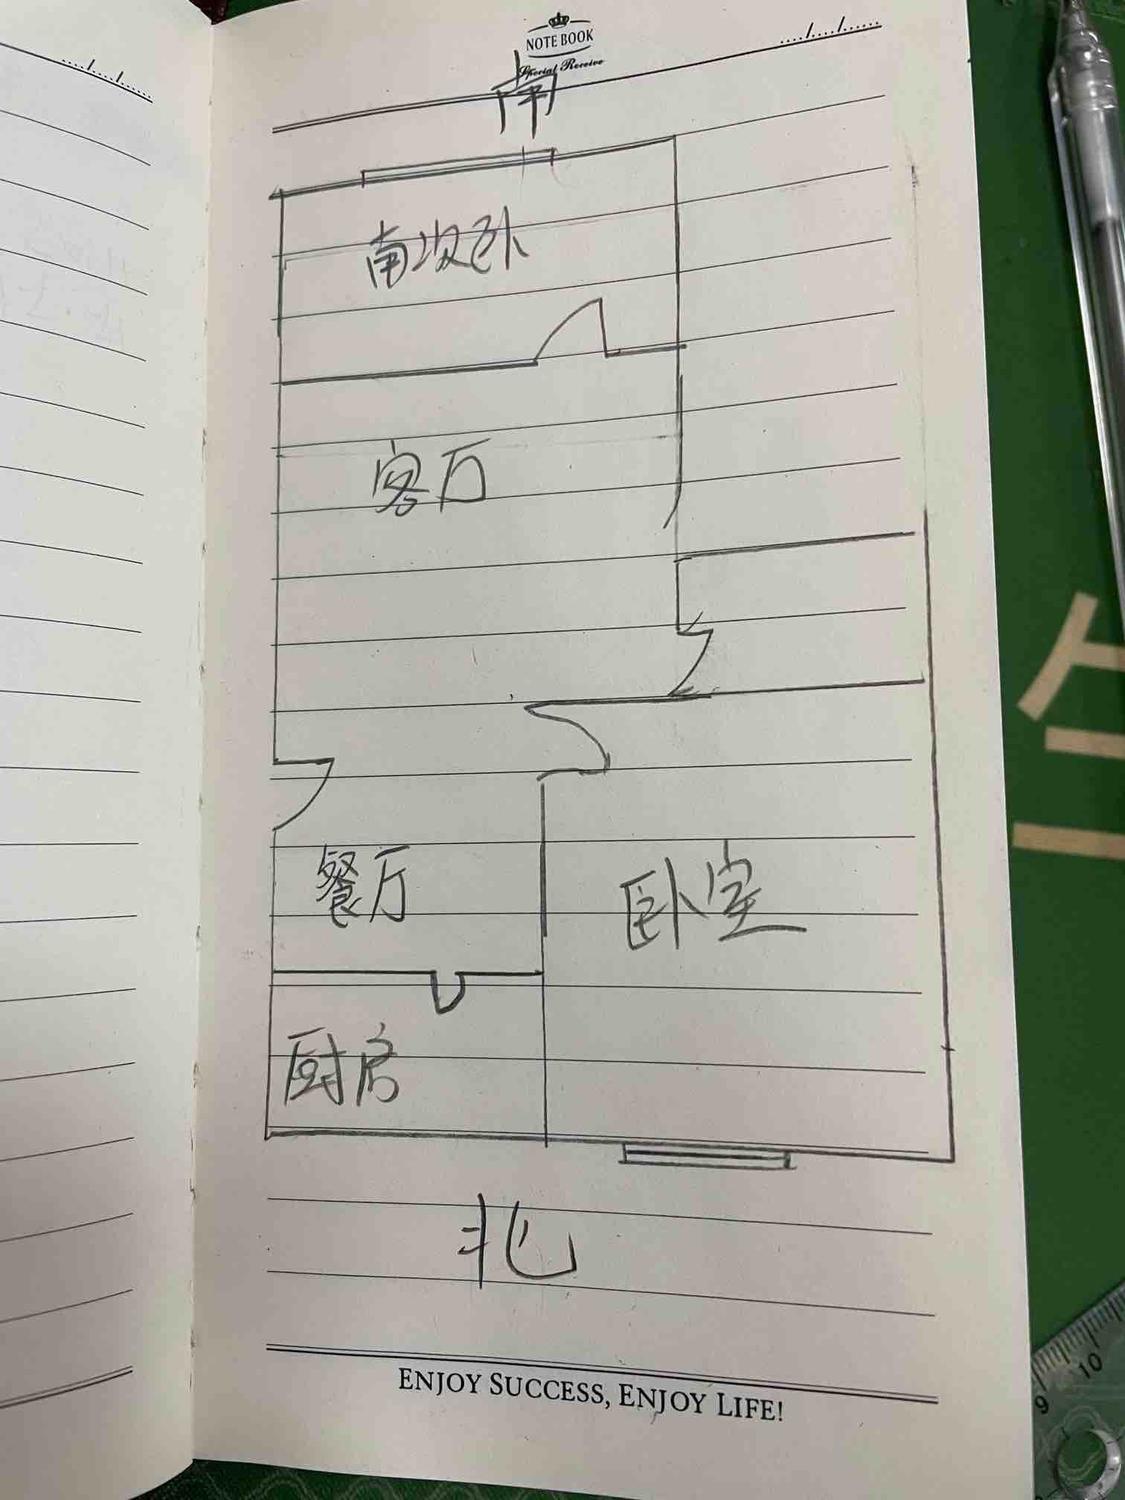 NOTE BOOK
Special Receive
南
南次卧
客厅
餐厅
卧室
厨房
北
ENJOY SUCCESS, ENJOY LIFE!
9 10